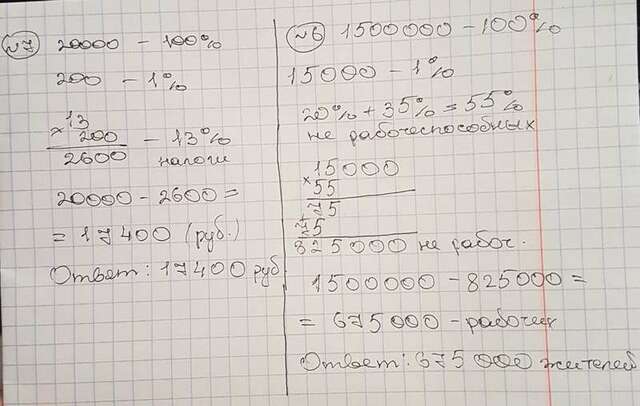 №7 20000 - 100%
200 - 1%
13
× 200 - 13%
2600 налоги
20000 - 2600 =
= 17400 (руб.)
Ответ: 17400 руб
№6 1500000 - 100%
15000 - 1%
20% + 35% = 55%
не рабочеспособных
15000
× 55
75
+ 75
825000 не рабоч.
1500000 - 825000 =
= 675000 - рабочих
Ответ: 675 000 жителей